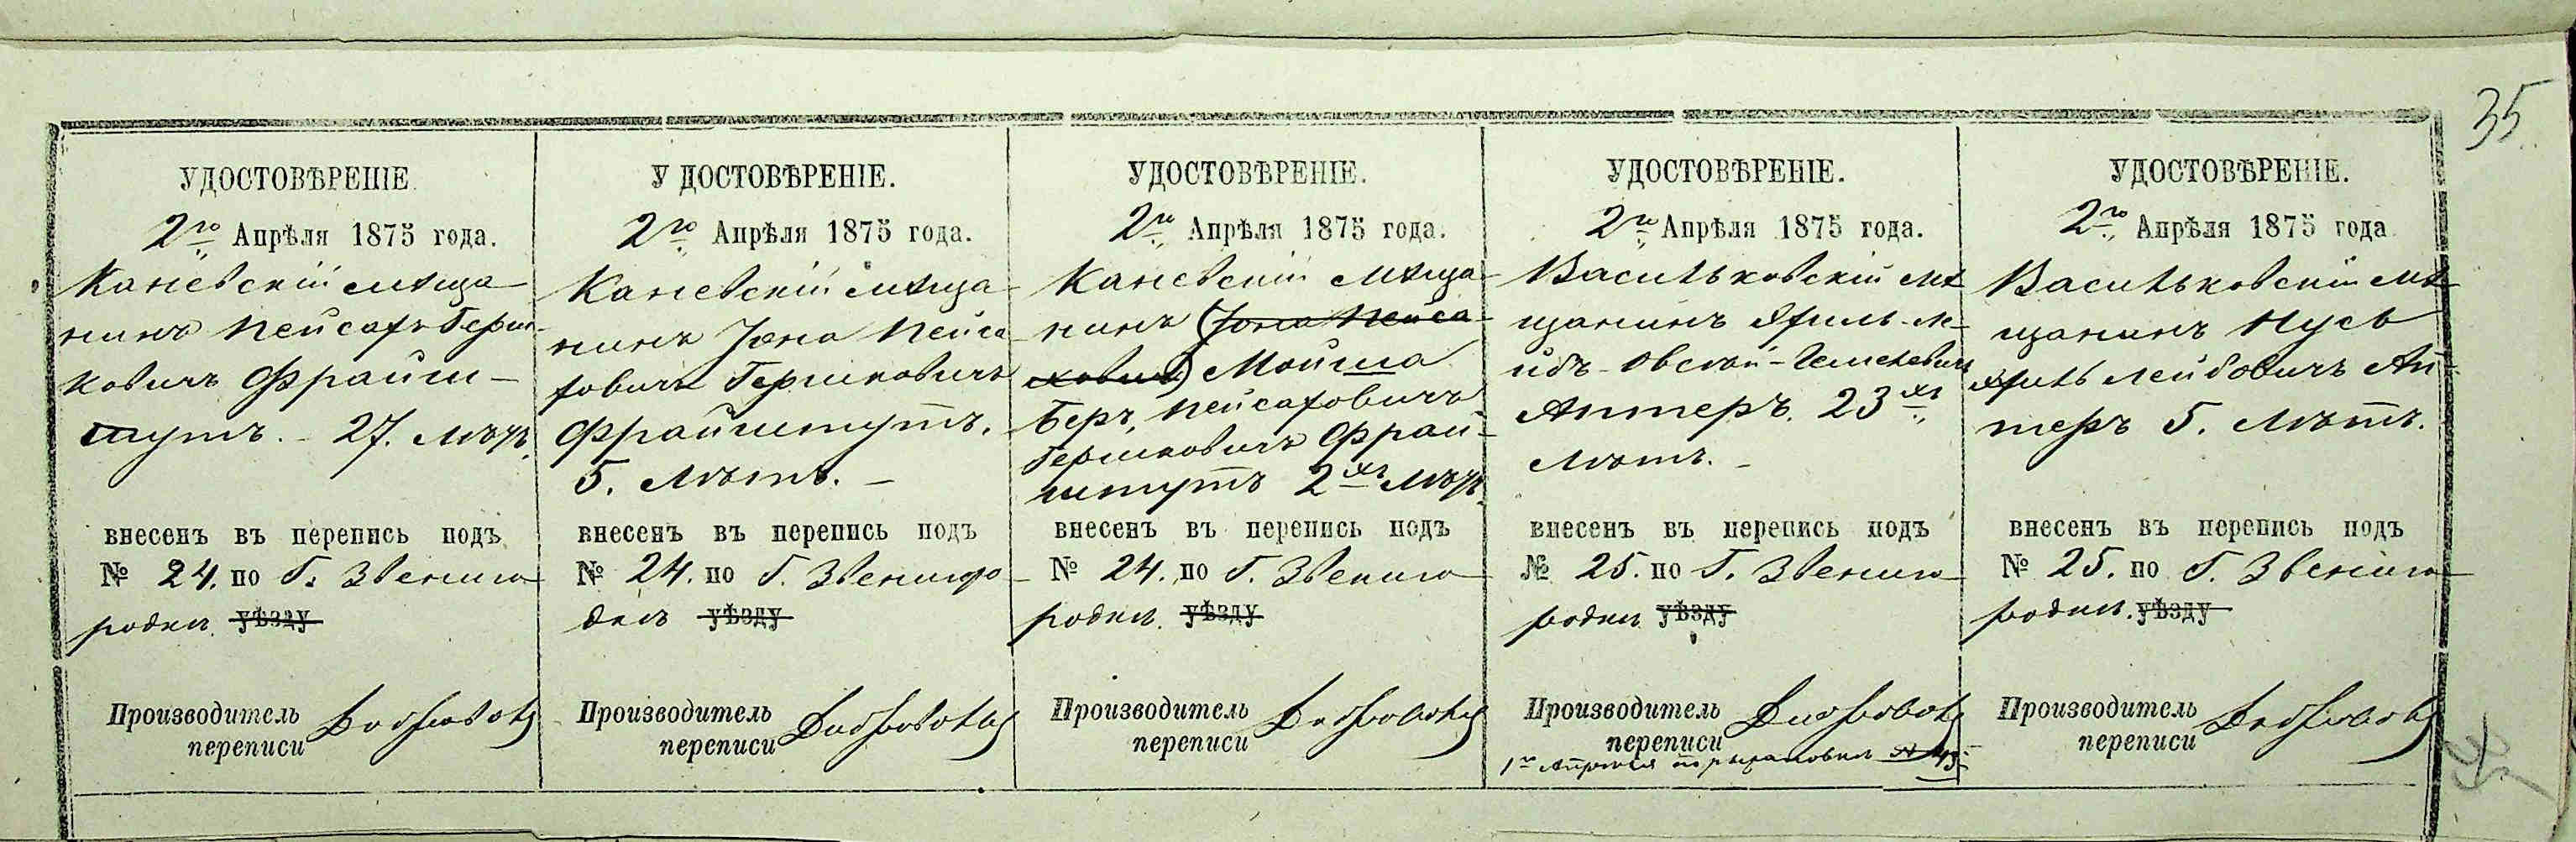 35
УДОСТОВѢРЕНІЕ
2го Апрѣля 1875 года.
Каневскій мѣща-
нинъ Пейсахъ Герш-
ковичъ Фрайш-
тутъ. - 27. лѣтъ.
внесенъ въ перепись подъ
№ 24. по Г. Звениго-
родкѣ. уѣзду
Производитель
переписи
УДОСТОВѢРЕНІЕ.
2го Апрѣля 1875 года.
Каневскій мѣща-
нинъ Іона Пейса-
ховичъ Гершковичъ
Фрайштутъ.
5. лѣтъ. -
внесенъ въ перепись подъ
№ 24. по Г. Звенигор-
дкѣ уѣзду
Производитель
переписи
УДОСТОВѢРЕНІЕ.
2го Апрѣля 1875 года.
Каневскій мѣща-
нинъ (Іона Пейса-
ховичъ) Мойша
Беръ, Пейсаховичъ
Гершковичъ Фрай-
штутъ 2хъ лѣтъ
внесенъ въ перепись подъ
№ 24. по Г. Звениго-
родкѣ. уѣзду
Производитель
переписи
УДОСТОВѢРЕНІЕ.
2го Апрѣля 1875 года.
Васильковскій мѣ-
щанинъ Ле-
йбъ-Овсей-
Аптеръ. 23хъ
лѣтъ. -
внесенъ въ перепись подъ
№ 25. по Г. Звениго-
родкѣ уѣзду
Производитель
переписи
1го Апрѣля по №
УДОСТОВѢРЕНІЕ.
2го Апрѣля 1875 года
Васильковскій мѣ-
щанинъ Нусь
Лейбовичъ Ап-
теръ 5. лѣтъ.
внесенъ въ перепись подъ
№ 25. по Г. Звениго-
родкѣ. уѣзду
Производитель
переписи